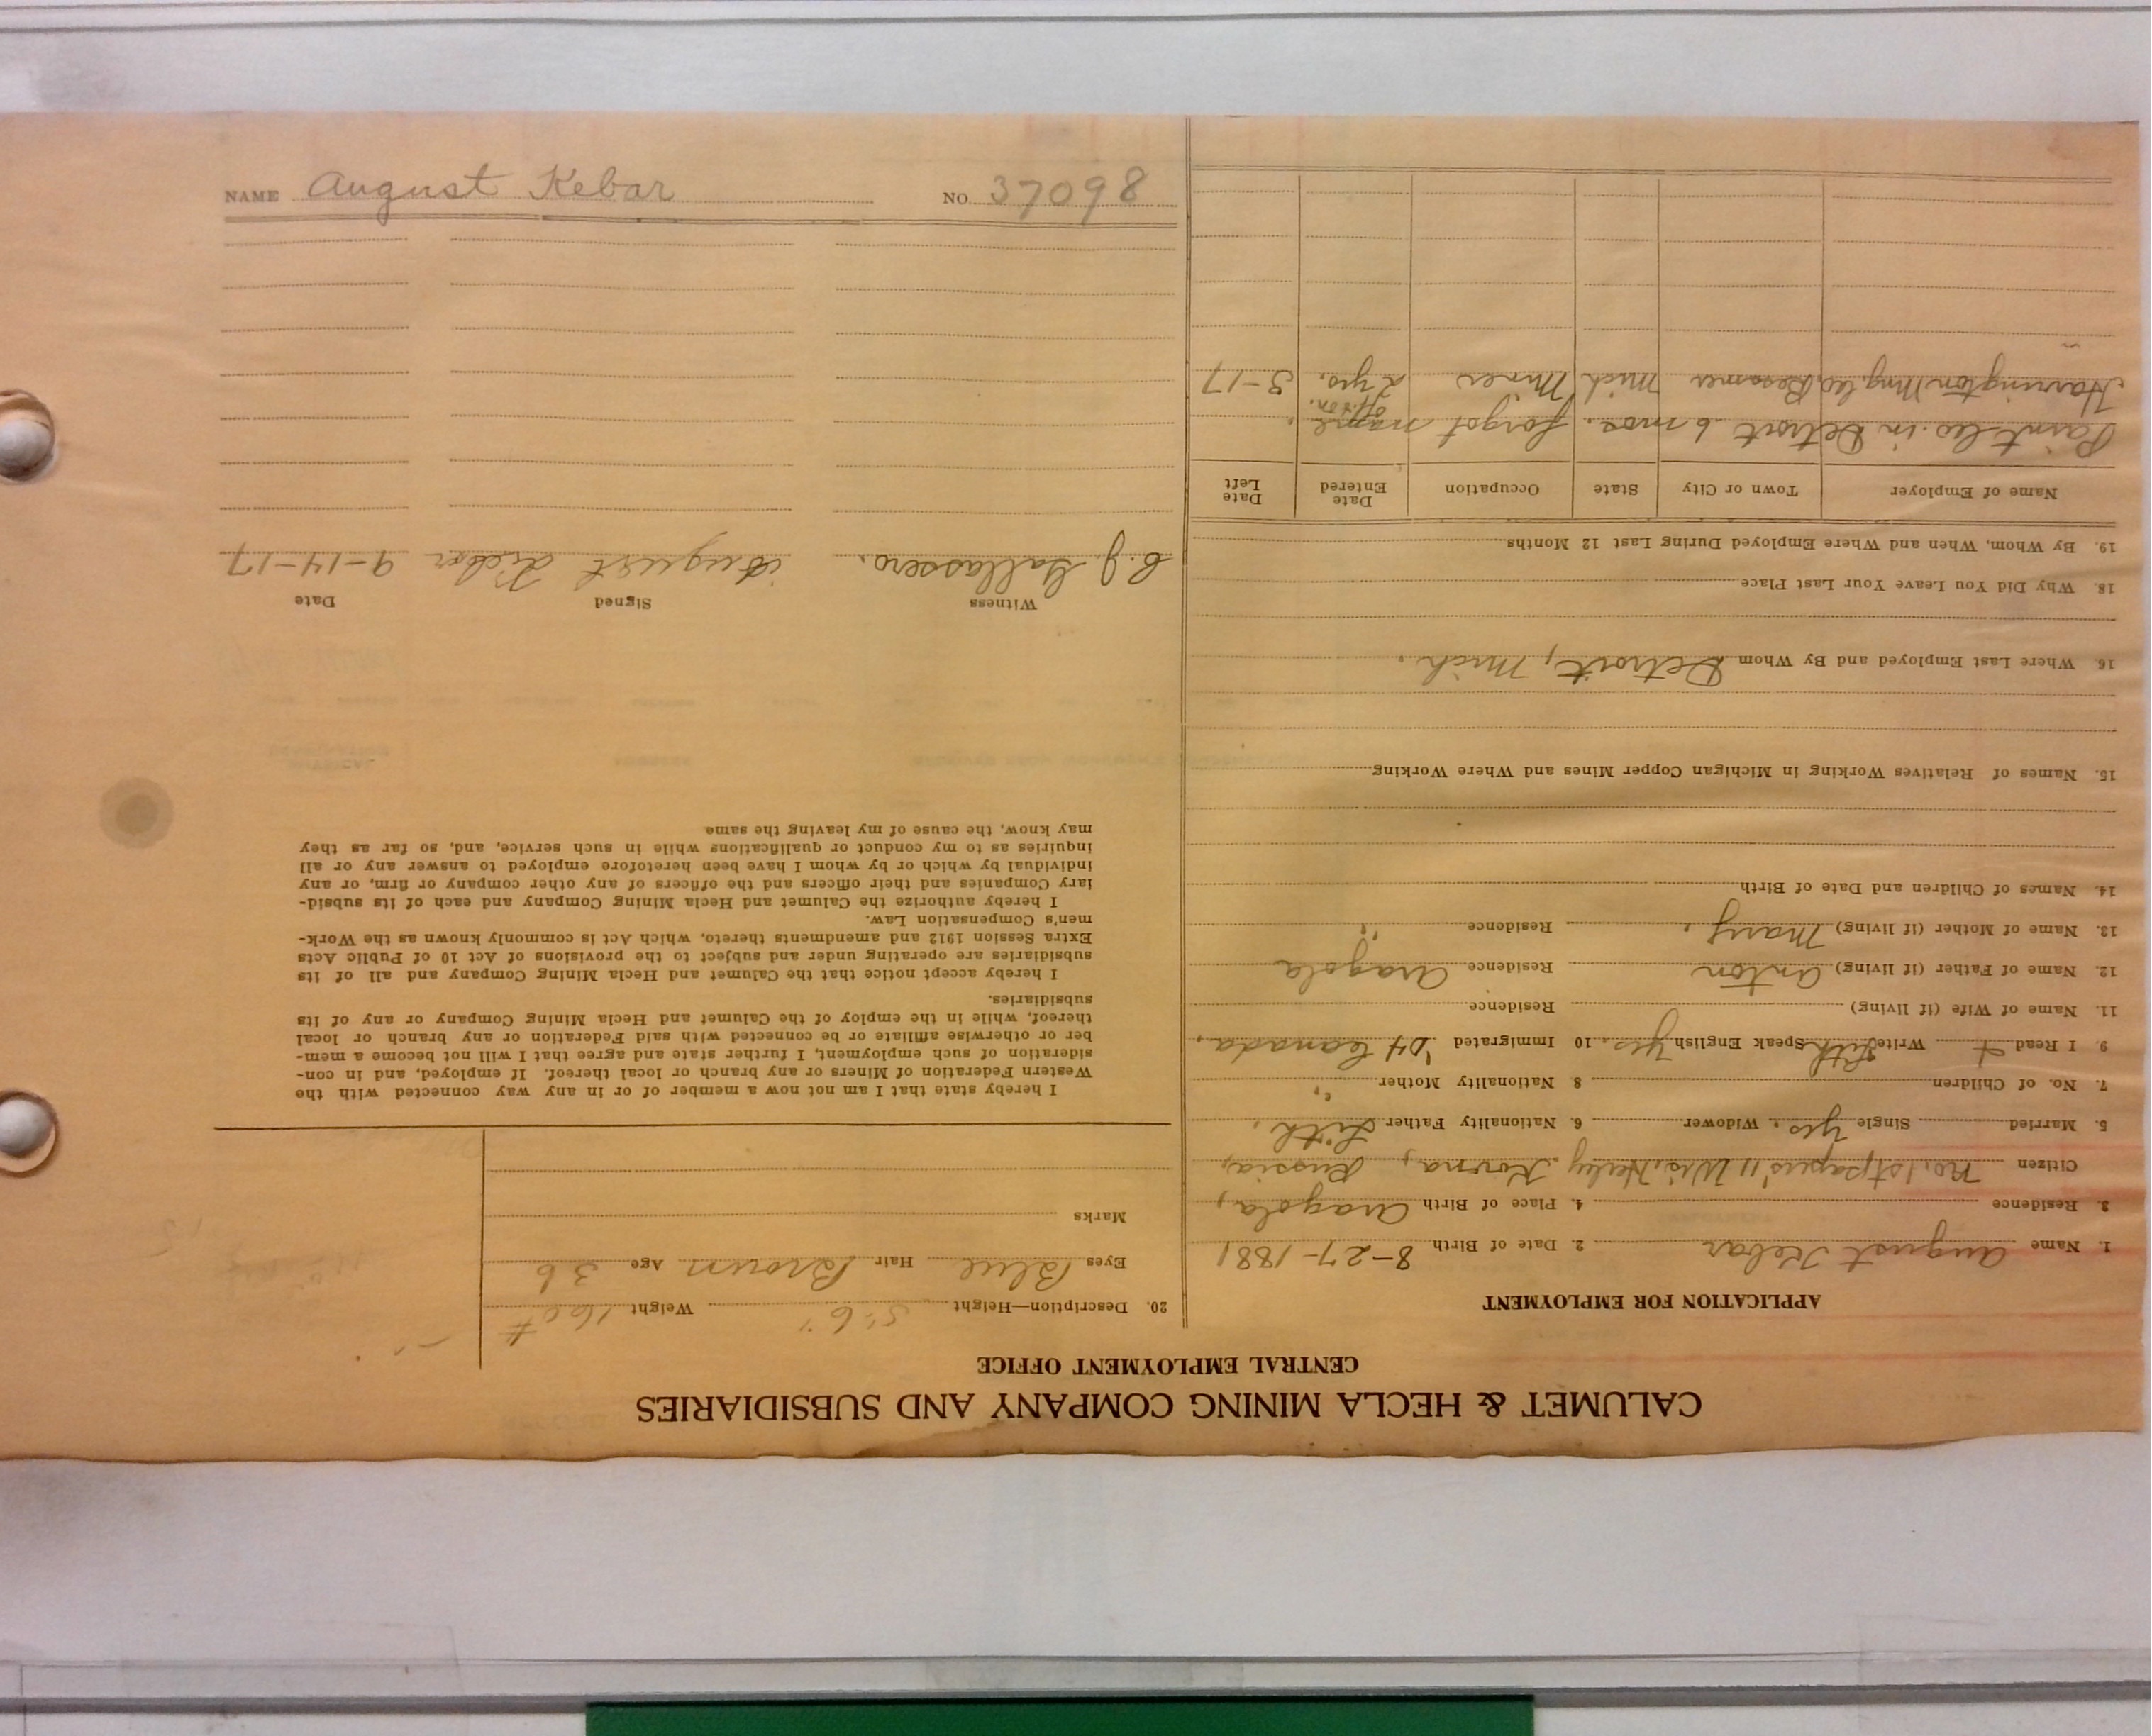 CALUMET & HECLA MINING COMPANY AND SUBSIDIARIES
CENTRAL EMPLOYMENT OFFICE
APPLICATION FOR EMPLOYMENT
1. Name August Kebar 2. Date of Birth 8-27-1881
3. Residence 4. Place of Birth Aragola,
Citizen No. 1st papers '11 Wis. Hurley Kovna, Russia,
5. Married Single Yes. Widower 6. Nationality Father Lith.
7. No. of Children 8 Nationality Mother "
9. I Read + Write Lith Speak English Yes. 10 Immigrated '04 Canada,
11. Name of Wife (if living) Residence
12. Name of Father (if living) Anton Residence Aragola
13. Name of Mother (if living) Mary. Residence "
14. Names of Children and Date of Birth
15. Names of Relatives Working in Michigan Copper Mines and Where Working
16. Where Last Employed and By Whom Detroit, Mich.
18. Why Did You Leave Your Last Place
19. By Whom, When and Where Employed During Last 12 Months
Name of Employer Town or City State Occupation Date Entered Date Left
Paint Co. in Detroit 6 mos. forgot name
Harrington Mng. Co. Bessemer Mich Miner 2 yrs. off & on. 3-17
20. Description—Height 5' 6" Weight 160 #
Eyes Blue Hair Brown Age 36
Marks
I hereby state that I am not now a member of or in any way connected with the
Western Federation of Miners or any branch or local thereof. If employed, and in con-
sideration of such employment, I further state and agree that I will not become a mem-
ber or otherwise affiliate or be connected with said Federation or any branch or local
thereof, while in the employ of the Calumet and Hecla Mining Company or any of its
subsidiaries.
I hereby accept notice that the Calumet and Hecla Mining Company and all of its
subsidiaries are operating under and subject to the provisions of Act 10 of Public Acts
Extra Session 1912 and amendments thereto, which Act is commonly known as the Work-
men's Compensation Law.
I hereby authorize the Calumet and Hecla Mining Company and each of its subsid-
iary Companies and their officers and the officers of any other company or firm, or any
individual by which or by whom I have been heretofore employed to answer any or all
inquiries as to my conduct or qualifications while in such service, and, so far as they
may know, the cause of my leaving the same
Witness Signed Date
C. J. Gallassero. August Kebar 9-14-17
NAME August Kebar NO. 37098